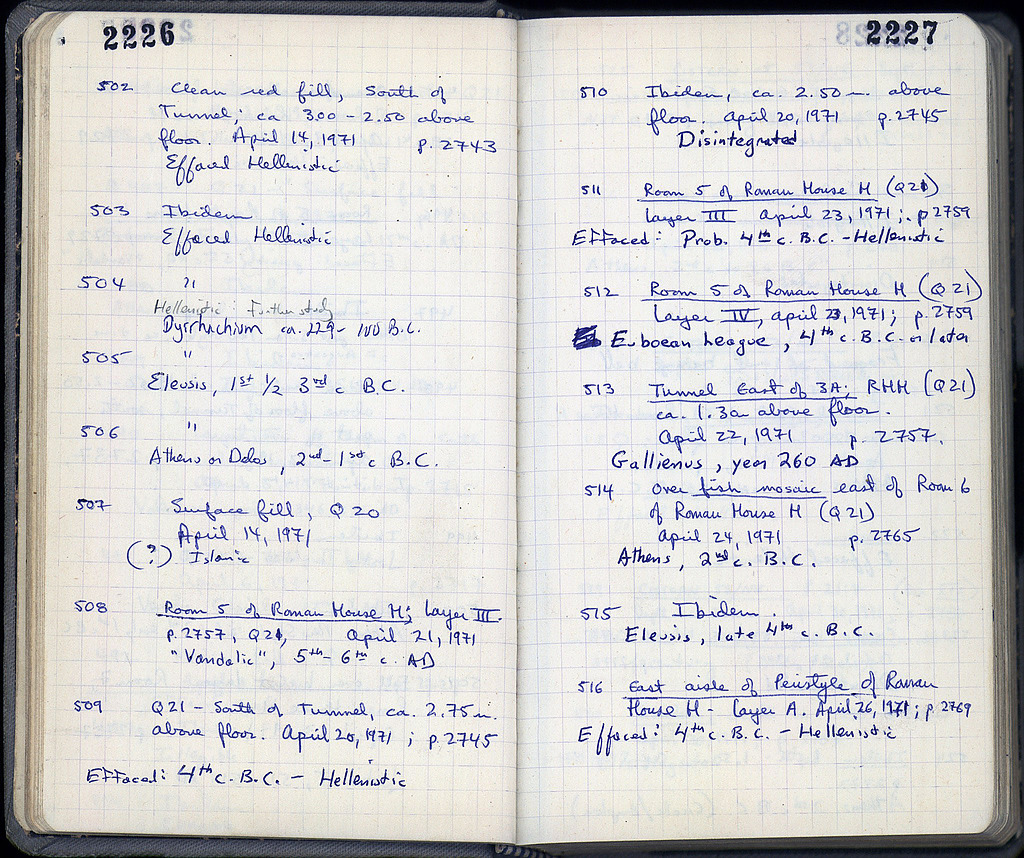 2226
502 Clean red fill, South of
Tunnel, ca 3.00 - 2.50 above
floor. April 14, 1971 p. 2743
Effaced Hellenistic
503 Ibidem
Effaced Hellenistic
504 "
Hellenistic : Further study
Dyrrhachium ca. 229 - 100 B.C.
505 "
Eleusis, 1st 1/2 3rd c B.C.
506 "
Athens or Delos, 2nd - 1st c B.C.
507 Surface fill, Q 20
April 14, 1971
(?) Islamic
508 Room 5 of Roman House H; Layer III.
p. 2757, Q21, April 21, 1971
"Vandalic", 5th - 6th c. AD
509 Q21 - South of Tunnel, ca. 2.75 m.
above floor. April 20, 1971 ; p. 2745
Effaced: 4th c. B.C. - Hellenistic
2227
510 Ibidem, ca. 2.50 m. above
floor. April 20, 1971 p. 2745
Disintegrated
511 Room 5 of Roman House H (Q21)
Layer III April 23, 1971 ; p 2759
Effaced: Prob. 4th c. B.C. - Hellenistic
512 Room 5 of Roman House H (Q 21)
Layer IV, April 23, 1971; p. 2759
Euboean League, 4th c. B.C. or later
513 Tunnel East of 3A; RHH (Q21)
ca. 1.30 above floor.
April 22, 1971 p. 2757.
Gallienus, year 260 AD
514 Over fish mosaic east of Room 6
of Roman House H (Q21)
April 24, 1971 p. 2765
Athens, 2nd c. B.C.
515 Ibidem.
Eleusis, late 4th c. B.C.
516 East aisle of Peristyle of Roman
House H - Layer A. April 26, 1971 ; p. 2769
Effaced: 4th c. B.C. - Hellenistic